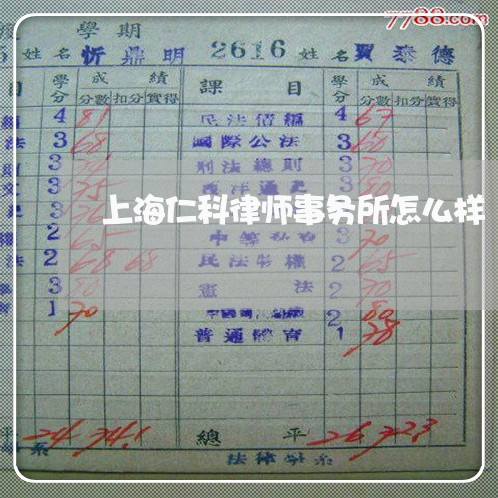 7788.com
學期
姓名 忻鼎明 2616 姓名 賈泰德
目 學分 成績 課目 學分 成績
分數 扣分 實得 分數 扣分 實得
4 81 民法債編 4 67
法 3 68 國際公法 3 60
則 3 刑法總則 3 70
文 3 75 西洋通史 3 80
上海仁科律师事务所怎么样
2 65 3 70
法 2 68 68 民法物權 2 65
3 80 憲法 2 70
育 1 70 2 80
普通體育 1 78
平 24 74.1 總平 26 72.3
系 法律學系